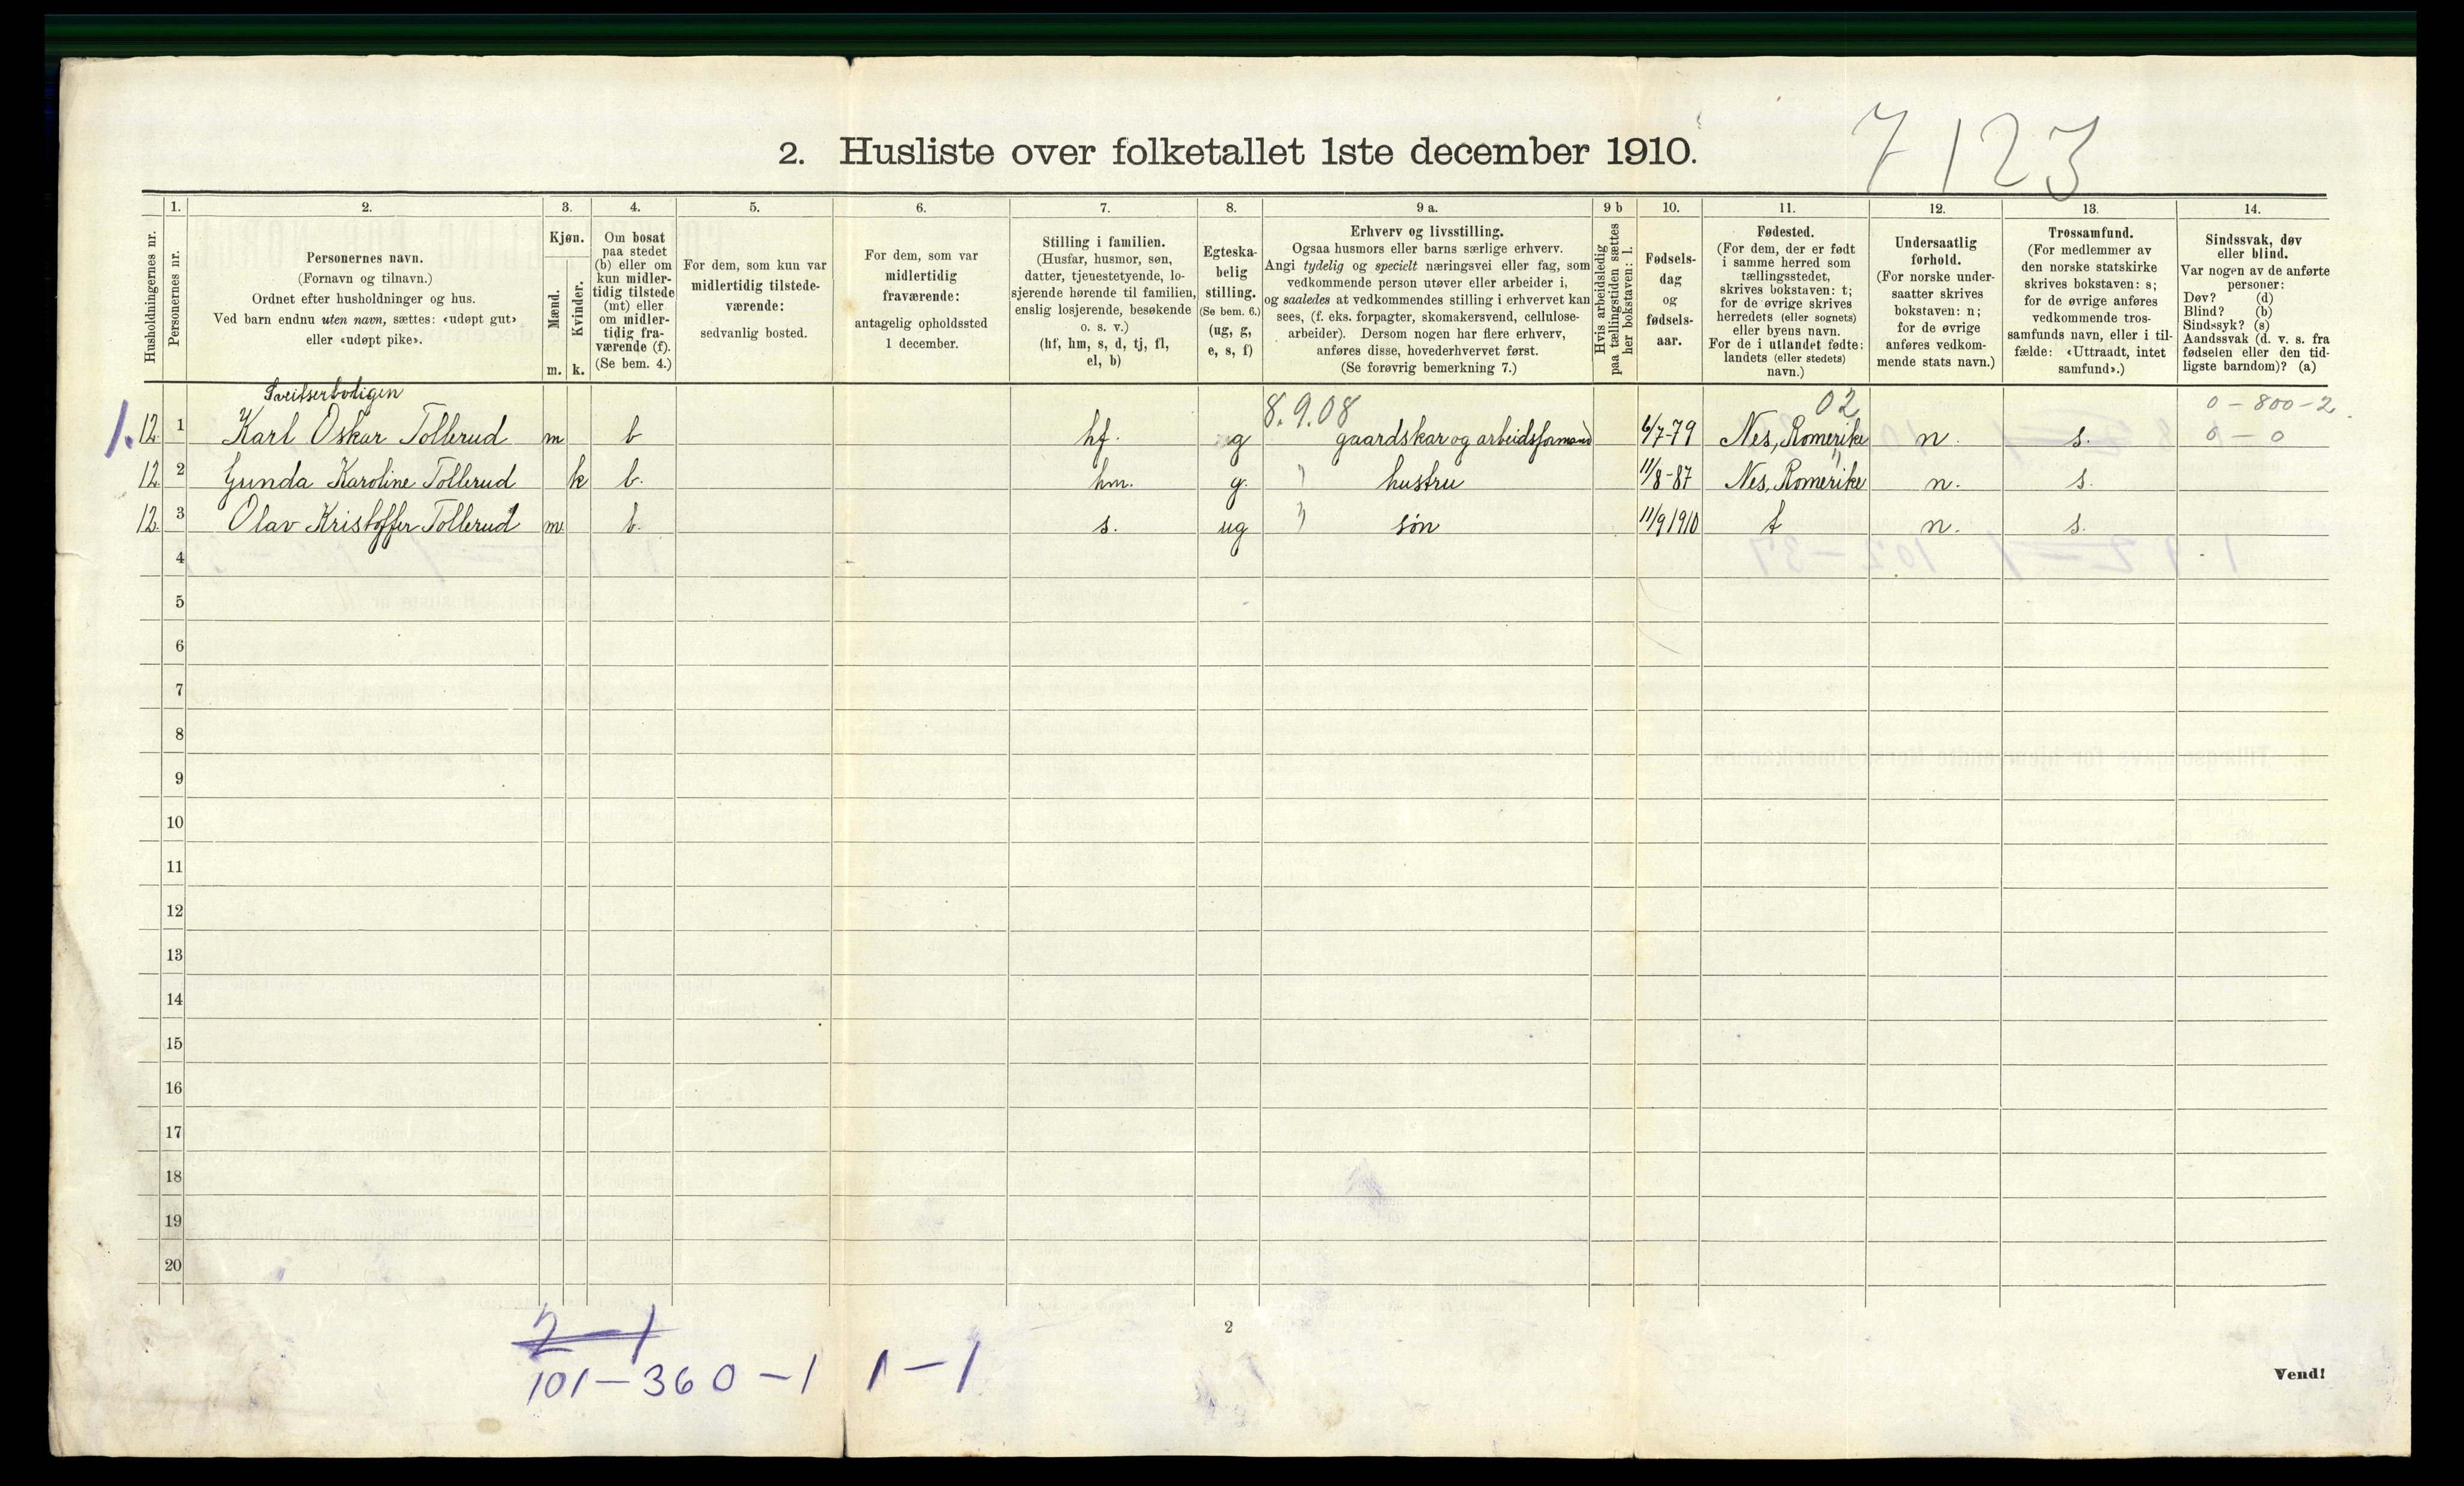 7123
2. Husliste over folketallet 1ste december 1910.
Husholdningernes nr.
1.
Personernes nr.
2.
Personernes navn.
(Fornavn og tilnavn.)
Ordnet efter husholdninger og hus.
Ved barn endnu uten navn, sættes: «udøpt gut»
eller «udøpt pike».
3.
Kjøn.
Mænd.
Kvinder.
m. k.
4.
Om bosat
paa stedet
(b) eller om
kun midler-
tidig tilstede
(mt) eller
om midler-
tidig fra-
værende (f).
(Se bem. 4.)
5.
For dem, som kun var
midlertidig tilstede-
værende:
sedvanlig bosted.
6.
For dem, som var
midlertidig
fraværende:
antagelig opholdssted
1 december.
7.
Stilling i familien.
(Husfar, husmor, søn,
datter, tjenestetyende, lo-
sjerende hørende til familien,
enslig losjerende, besøkende
o. s. v.)
(hf, hm, s, d, tj, fl,
el, b)
8.
Egteska-
belig
stilling.
(Se bem. 6.)
(ug, g,
e, s, f)
9 a.
Erhverv og livsstilling.
Ogsaa husmors eller barns særlige erhverv.
Angi tydelig og specielt næringsvei eller fag, som
vedkommende person utøver eller arbeider i,
og saaledes at vedkommendes stilling i erhvervet kan
sees, (f. eks. forpagter, skomakersvend, cellulose-
arbeider). Dersom nogen har flere erhverv,
anføres disse, hovederhvervet først.
(Se forøvrig bemerkning 7.)
9 b
Hvis arbeidsledig
paa tællingstiden sættes
her bokstaven: l.
10.
Fødsels-
dag
og
fødsels-
aar.
11.
Fødested.
(For dem, der er født
i samme herred som
tællingsstedet,
skrives bokstaven: t;
for de øvrige skrives
herredets (eller sognets)
eller byens navn.
For de i utlandet fødte:
landets (eller stedets)
navn.)
12.
Undersaatlig
forhold.
(For norske under-
saatter skrives
bokstaven: n;
for de øvrige
anføres vedkom-
mende stats navn.)
13.
Trossamfund.
(For medlemmer av
den norske statskirke
skrives bokstaven: s;
for de øvrige anføres
vedkommende tros-
samfunds navn, eller i til-
fælde: «Uttraadt, intet
samfund».)
14.
Sindssvak, døv
eller blind.
Var nogen av de anførte
personer:
Døv? (d)
Blind? (b)
Sindssyk? (s)
Aandssvak (d. v. s. fra
fødselen eller den tid-
ligste barndom)? (a)
Sveitserboligen 8.9.08 02 0-800-2
1. 12. 1 Karl Oskar Tollerud m b hf. g gaardskar og arbeidsformand 6/7-79 Nes, Romerike n. s. 0-0
12. 2 Gunda Karoline Tollerud k b. hm. g. " hustru 11/8-87 Nes, Romerike n. s.
12. 3 Olav Kristoffer Tollerud m. b. s. ug " søn 11/9 1910 t n. s.
4
5
6
7
8
9
10
11
12
13
14
15
16
17
18
19
20
2-1
2
101-360-1 1-1
Vend!